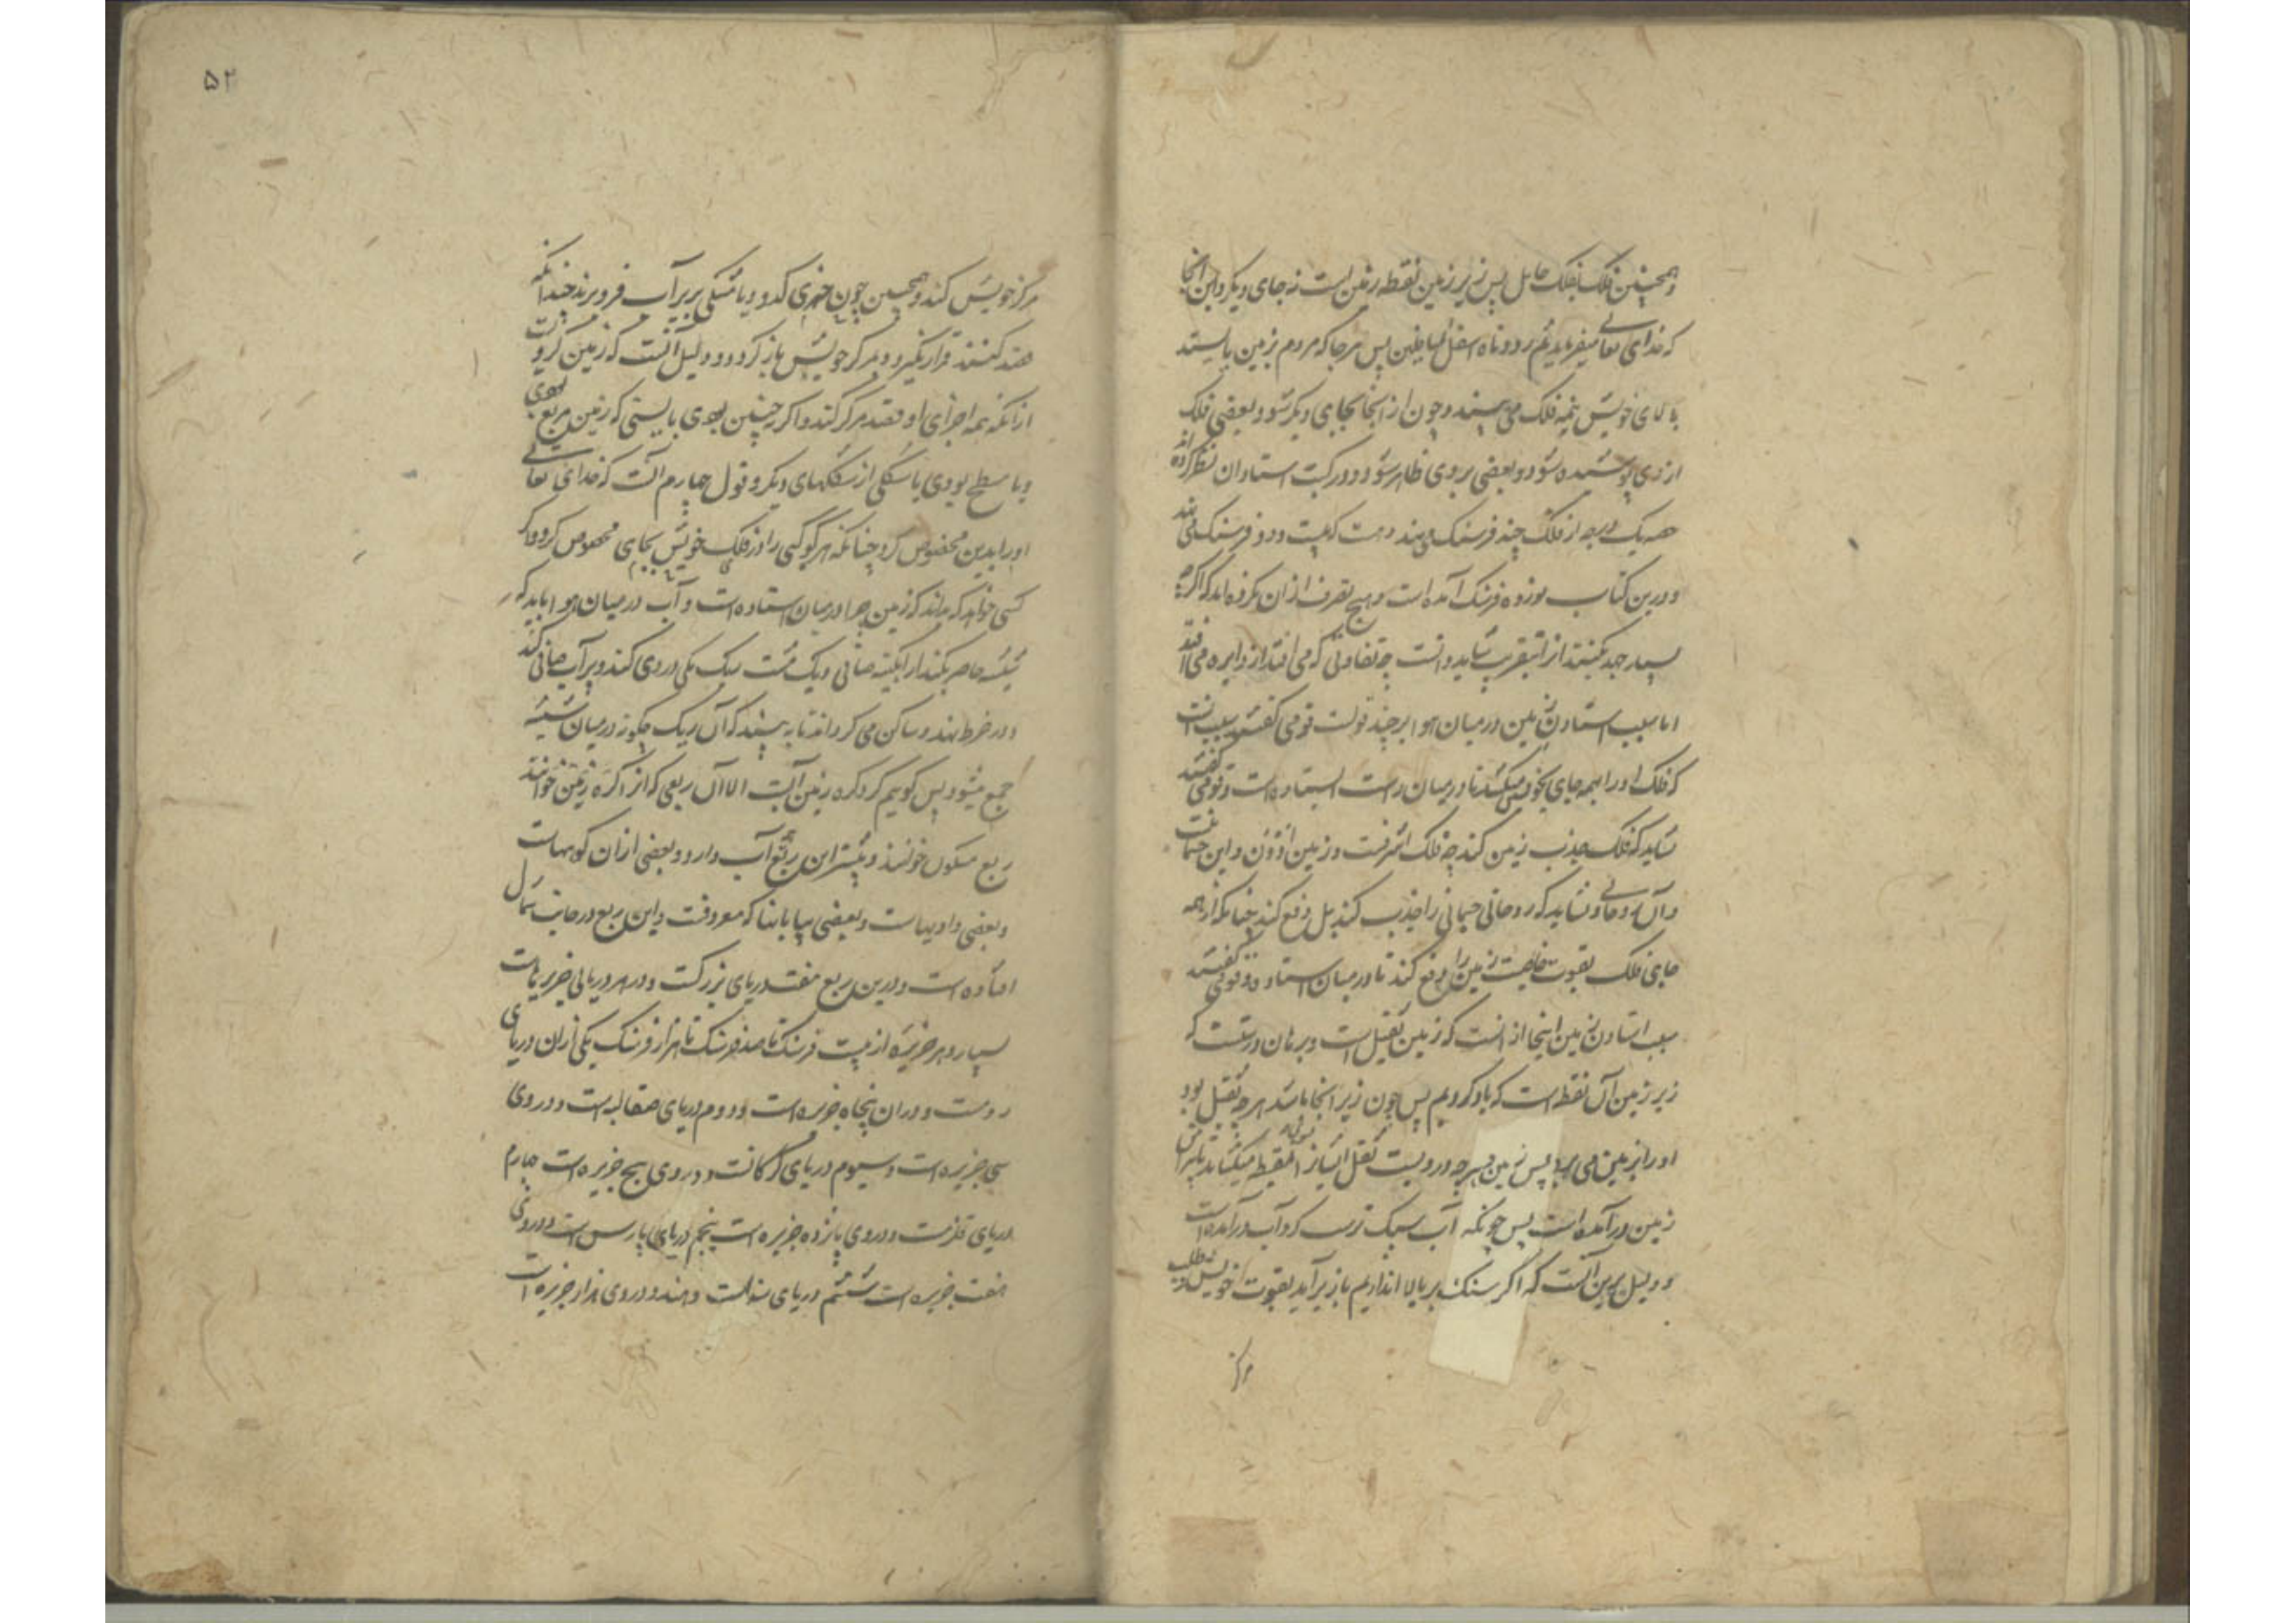 وهمچنین فلک بفلک حامل پس زیر زمین نقطه زمین است نه جای دیگر و این آنجا
که خدای تعالی میفرماید ثم رددناه اسفل السافلین پس هرجا که مردم بزمین بایستد
بالای خویش نیمه فلک می بیند و چون از آنجا بجای دیگر شود بعضی فلک
از وی پوشیده شود و بعضی بروی ظاهر شود و در کتب استادان نظر کرده اند
یک درجه از فلک چند فرسنک می نهند بیست و دو فرسنک می نهند
و درین کتاب نوزده فرسنک آمده است و هیچ تصرف از آن نکرده اند که اگرچه
بسیار جهد بکنند از تقریب شاید دانست چه تفاوتی که می افتد از دایره می افتد
اما سبب استادن زمین در میان هوا بر چند قولست قومی گفتند سبب آنست
که فلک او را همه جای بخویش میکشد تا در میان راست ایستاده است و قومی گفتند
نشاید که فلک جذب زمین کند چه فلک اشرفست و زمین ادون و این جسمانیست
و آن روحانی و نشاید که روحانی جسمانی را جذب کند بل دفع کند چنانکه از همه
جای فلک بقوت زمین را دفع کند تا در میان استاده و قومی گفتند
سبب استادن زمین اینجا از آنست که زمین ثقیل است و برهان درستست که
زیر زمین آن نقطه است که یاد کردیم پس چون زیر آنجا باشد هرچه ثقیل بود
او را بزمین می برد پس زمین هرچه درویست ثقل
زمین در آمده است پس چونکه آب سبک ترست کرد آب در آمده است
و دلیل برین آنست که اگر سنک بر بالا اندازیم باز زیر آید بقوت خویش و طلب
مرکز
۵۲
مرکز خویش کند و همچنین چون خیری کدو و یا مشکی بزیر آب فرو برند چندانکه
جهد کنند قرار نگیرد و بمرکز خویش باز گردد و دلیل آنست که زمین کرویست
از آنکه همه اجزای او قصد مرکز کند و اگر چنین نبودی بایستی که زمین مربع بودی
و یا مسطح بودی یا شکلی از شکلهای دیگر و قول چهارم آنست که خدای تعالی
او را بدین مخصوص کرد چنانکه هر کوکبی را در فلک خویش بجای مخصوص کرد و اگر
کسی خواهد که بداند که زمین چرا در میان استاده است و آب در میان هوا باید که
شیشه حاضر بکند از آبگینه صافی و یک مشت ریک در وی کند و پر آب صافی کند
و در خرط نهند و ساکن می گرداند تا به بیند که آن ریک چگونه در میان شیشه
جمع میشود پس گوییم گرد کره زمین آبست الا آن ربعی که از کره زمین خوانند
ربع مسکون خوانند و بیشتر این ربع آب دارد و بعضی از آن کوههاست
و بعضی وادیهاست و بعضی بیابانها که معروفست و این ربع در جانب شمال
افتاده است و درین ربع هفت دریای بزرکست و در هر دریایی جزیرهاست
بسیار و هر جزیره از بیست فرسنک تا صد فرسنک تا هزار فرسنک یکی از آن دریای
رومست و در آن پنجاه جزیره است و دوم دریای صقالبه است و در وی
سی جزیره است و سیوم دریای گرگانست و در وی پنج جزیره است چهارم
دریای قلزمست و در وی پانزده جزیره است پنجم دریای پارس است و در وی
هفت جزیره است ششم دریای سندست و هند و در وی هزار جزیره است